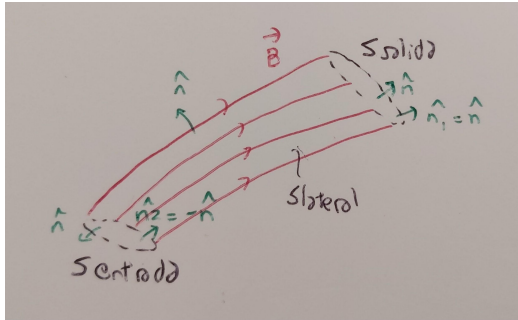 B
S salida
n̂
n̂
n̂₁ = n̂
S lateral
n̂
n̂2 = -n̂
S entrada